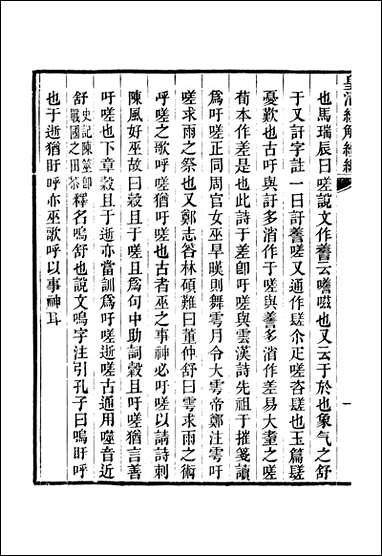 皇清經解續編
也馬瑞辰曰嗟說文作𧪘云𧪘嗞也又云于於也象氣之舒
于又訏字註一曰訏𧪘嗟又通作𨲠尒疋嗟咨𨲠也玉篇𨲠
憂歎也古吁與訏多消作于嗟與𧪘多消作差易大耋之嗟
荀本作差是也此詩于差卽吁嗟與雲漢詩先祖于摧箋讀
爲吁嗟正同周官女巫旱暵則舞雩月令大雩帝鄭注雩吁
嗟求雨之祭也又鄭志荅林碩難曰董仲舒曰雩求雨之術
呼嗟之歌呼嗟猶吁嗟也古者巫之事神必吁嗟以請詩刺
陳風好巫故曰穀且于嗟且爲句中助詞穀且吁嗟猶言善
吁嗟也下章穀且于逝亦當訓爲吁嗟逝嗟古通用噬音近
舒史記陳筮卽戰國之田荼釋名嗚舒也說文嗚字注引孔子曰嗚盱呼
也于逝猶盱呼亦巫歌呼以事神耳
一